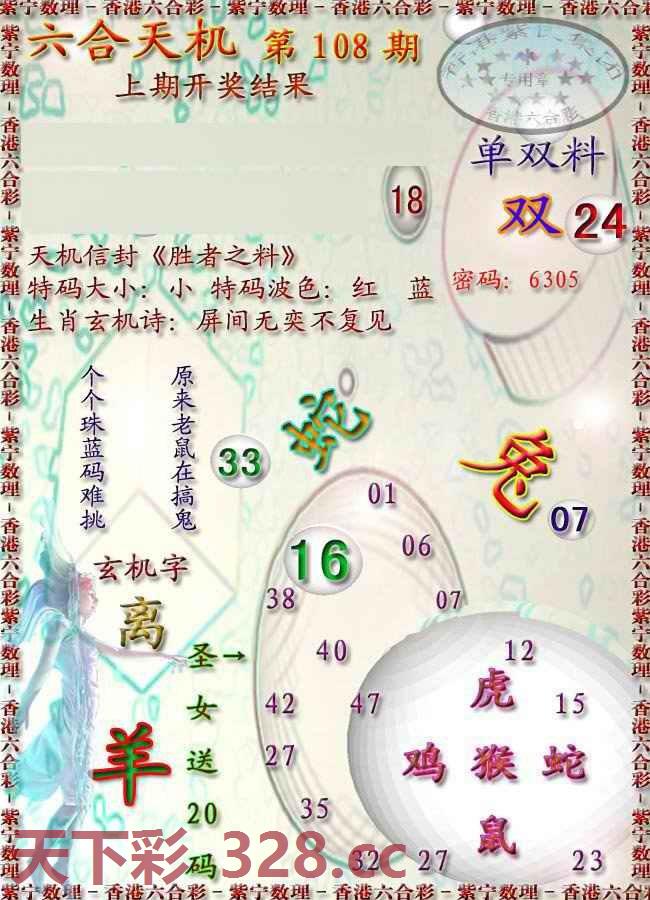 紫宁数理-香港六合彩-紫宁数理-香港六合彩-紫宁数理-香港六合彩
六合天机 第 108 期
上期开奖结果
专用章
香港六合彩
单双料
18
双 24
天机信封《胜者之料》
特码大小: 小 特码波色: 红 蓝
密码: 6305
生肖玄机诗: 屏间无奕不复见
原来老鼠在搞鬼
个个珠蓝码难挑
33
蛇
兔
07
01
16
06
玄机字
离
38
07
圣女送20码
→
40
12
42
47
虎
15
羊
27
鸡 猴 蛇
35
鼠
32
27
23
天下彩.328.cc
紫宁数理-香港六合彩-紫宁数理-香港六合彩-紫宁数理-香港六合彩